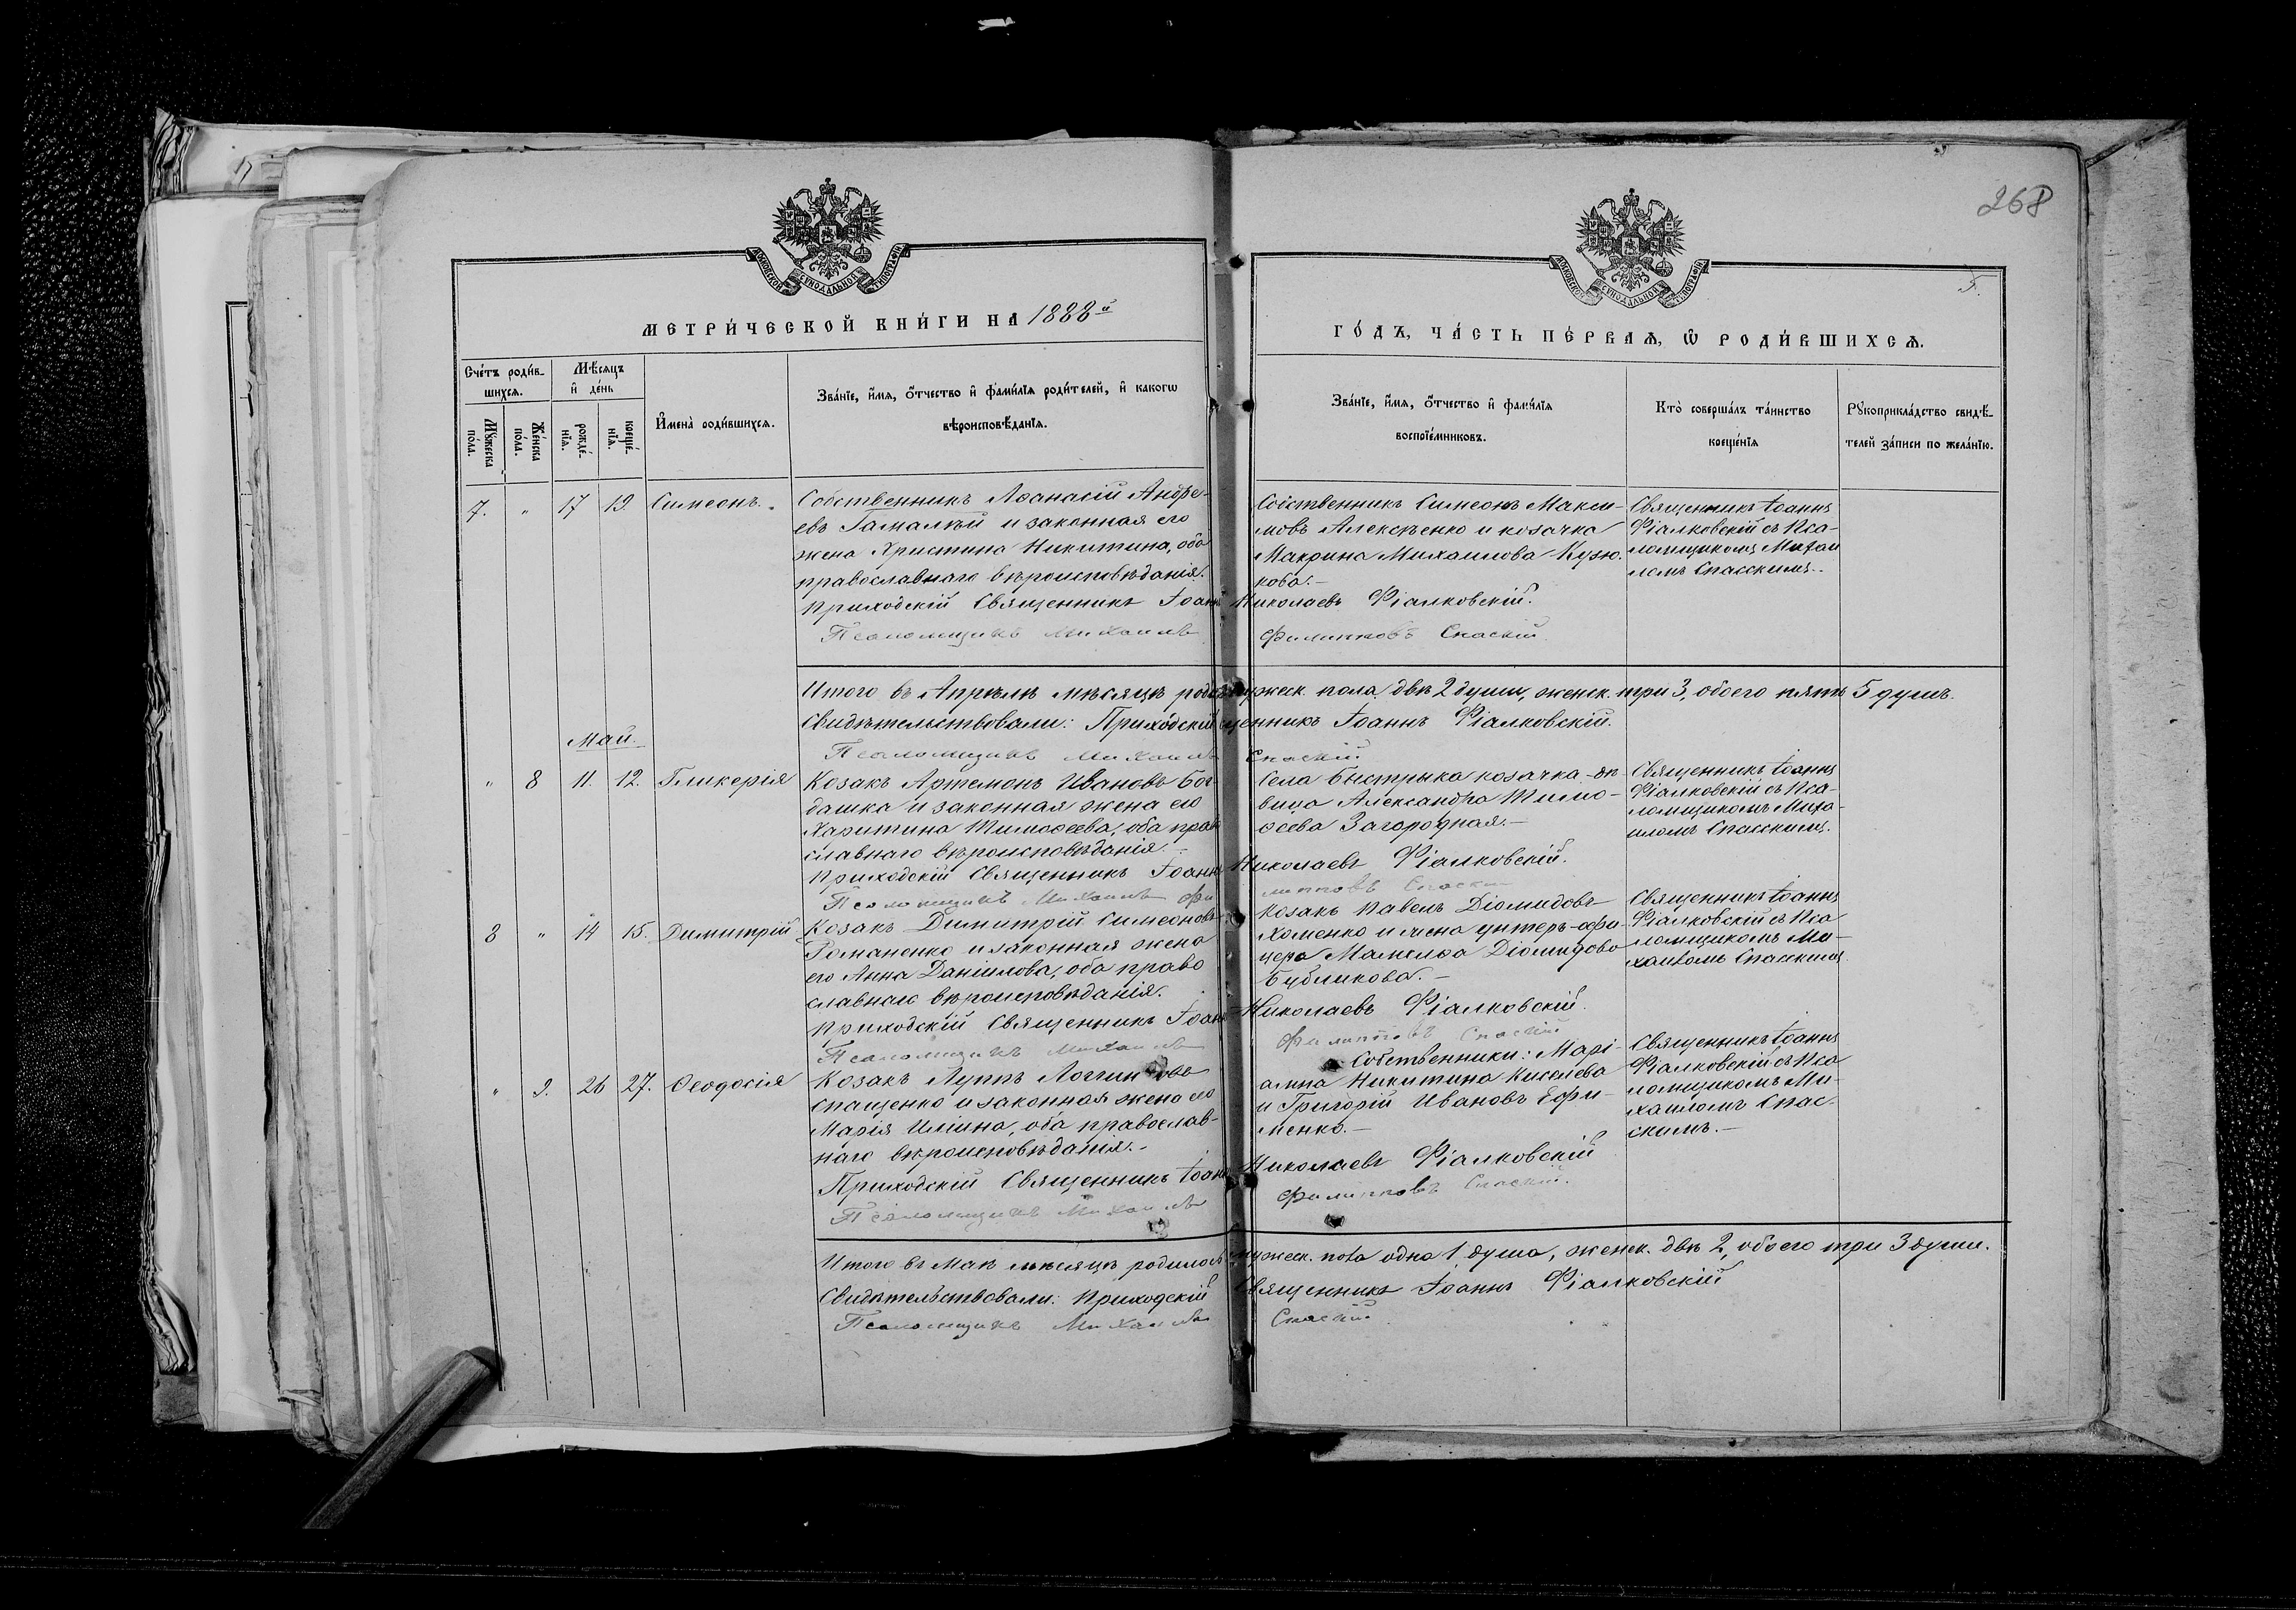 268
5.
МОСКОВСКОЙ СѴНОДАЛЬНОЙ ТИПОГРАФІИ
МОСКОВСКОЙ СѴНОДАЛЬНОЙ ТИПОГРАФІИ
МЕТРИ́ЧЕСКОЙ КНИ́ГИ НА 1888й
ГО́ДЪ, ЧА́СТЬ ПЕ́РВАѦ, Ѡ РОДИ́ВШИХСѦ.
Сче́тъ роди́в-
шихсѧ.
Мѣ́сѧцъ
и҆ де́нь
Мꙋ́жеска по́ла.
Же́нска по́ла.
рожде́-нїѧ.
креще́-нїѧ.
И҆мена̀ роди́вшихсѧ.
Зва́нїе, и҆́мѧ, ѻ҆́тчество и҆ фами́лїѧ роди́телей, и҆ како́гѡ
вѣроисповѣ́данїѧ.
Зва́нїе, и҆́мѧ, ѻ҆́тчество и҆ фами́лїѧ
воспрїе́мниковъ.
Кто̀ соверша́лъ та́инство
креще́нїѧ
Рꙋкоприкла́дство свидѣ́-
телей за́писи по жела́нїю.
7. " 17 19. Симеонъ.
Собственникъ Аѳанасій Андре-
евъ Гамалѣй и законная его
жена Христина Никитина, оба
православнаго вѣроисповѣданія.
Собственникъ Симеонъ Макси-
мовъ Алексѣенко и козачка
Макрина Михаилова Кузю-
кова.-
Священникъ Іоаннъ
Фіалковскій съ Пса-
ломщикомъ Михаи
ломъ Спасскимъ.
Приходскій Священникъ Іоаннъ Николаевъ Фіалковскій.
Псаломщикъ Михаилъ Филипповъ Спаскій
Итого въ Апрѣлѣ мѣсяцѣ родилось мужеск. пола двѣ 2 души, женск. три 3, обоего пять 5 душъ.
Свидѣтельствовали: Приходскій Священникъ Іоаннъ Фіалковскій.
Псаломщикъ Михаилъ Спаскій
Май.
" 8 11. 12. Гликерія
Козакъ Артемонъ Ивановъ Бог-
дашка и законная жена его
Харитина Тимоѳеева, оба право
славнаго вѣроисповѣданія.
Села Быстрыка козачка-дѣ-
вица Александра Тимо-
ѳеева Загородная.-
Священникъ Іоаннъ
Фіалковскій съ Пса-
ломщикомъ Миха-
иломъ Спасскимъ.
Приходскій Священникъ Іоаннъ Николаевъ Фіалковскій.
Псаломщикъ Михаилъ Филипповъ Спаскій
8 " 14 15. Димитрій
Козакъ Димитрій Симеоновъ
Романенко и законная жена
его Анна Даниилова, оба право
славнаго вѣроисповѣданія.
Козакъ Павелъ Діомидовъ
Хоменко и жена унтеръ-офи-
цера Мамелфа Діомидова
Бубликова.-
Священникъ Іоаннъ
Фіалковскій съ Пса
ломщикомъ Ми-
хаиломъ Спасскимъ
Приходскій Священникъ Іоаннъ Николаевъ Фіалковскій.
Псаломщикъ Михаилъ Филипповъ Спаскій
" 9. 26 27. Ѳеодосія
Козакъ Луппъ Логгиновъ
Спащенко и законная жена его
Марія Илиина, оба православ-
наго вѣроисповѣданія.-
Собственники: Марі-
амна Никитина Киселева
и Григорій Ивановъ Ефи-
менко.-
Священникъ Іоаннъ
Фіалковскій съ Пса
ломщикомъ Ми-
хаиломъ Спас-
скимъ.-
Приходскій Священникъ Іоаннъ Николаевъ Фіалковскій
Псаломщикъ Михаилъ Филипповъ Спаскій.
Итого въ Маѣ мѣсяцѣ родилось мужеск. пола одна 1 душа, женск. двѣ 2, обоего три 3 души.
Свидѣтельствовали: Приходскій Священникъ Іоаннъ Фіалковскій
Псаломщикъ Михаилъ Спаскій